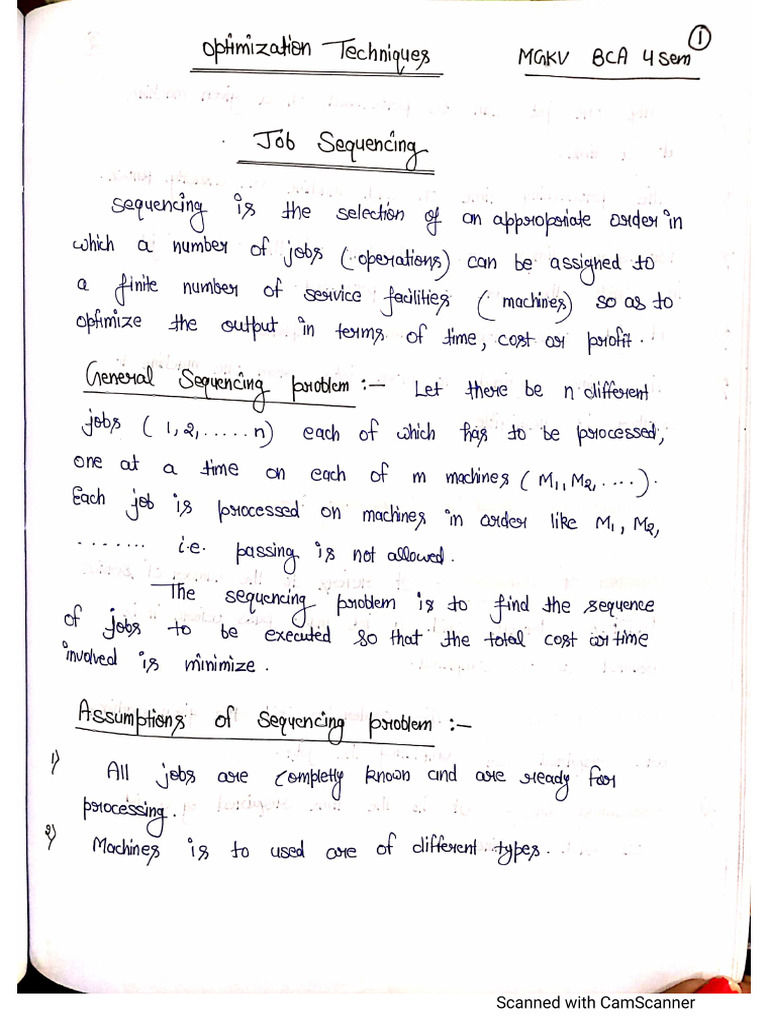 Optimization Techniques
MGKV BCA 4 Sem
1
Job Sequencing
Sequencing is the selection of an appropriate order in
which a number of jobs (operations) can be assigned to
a finite number of service facilities (machines) so as to
optimize the output in terms of time, cost or profit.
General Sequencing problem :- Let there be n different
jobs (1, 2, ..... n) each of which has to be processed,
one at a time on each of m machines (M1, M2, ....).
Each job is processed on machines in order like M1, M2,
........ i.e. passing is not allowed.
The sequencing problem is to find the sequence
of jobs to be executed so that the total cost or time
involved is minimize.
Assumptions of sequencing problem :-
1) All jobs are completly known and are ready for
processing.
2) Machines is to used are of different types.
Scanned with CamScanner